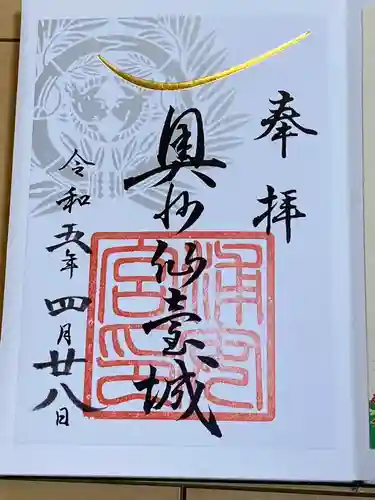 奉拝
奥州仙臺城
令和五年四月廿八日
浦安
宮印